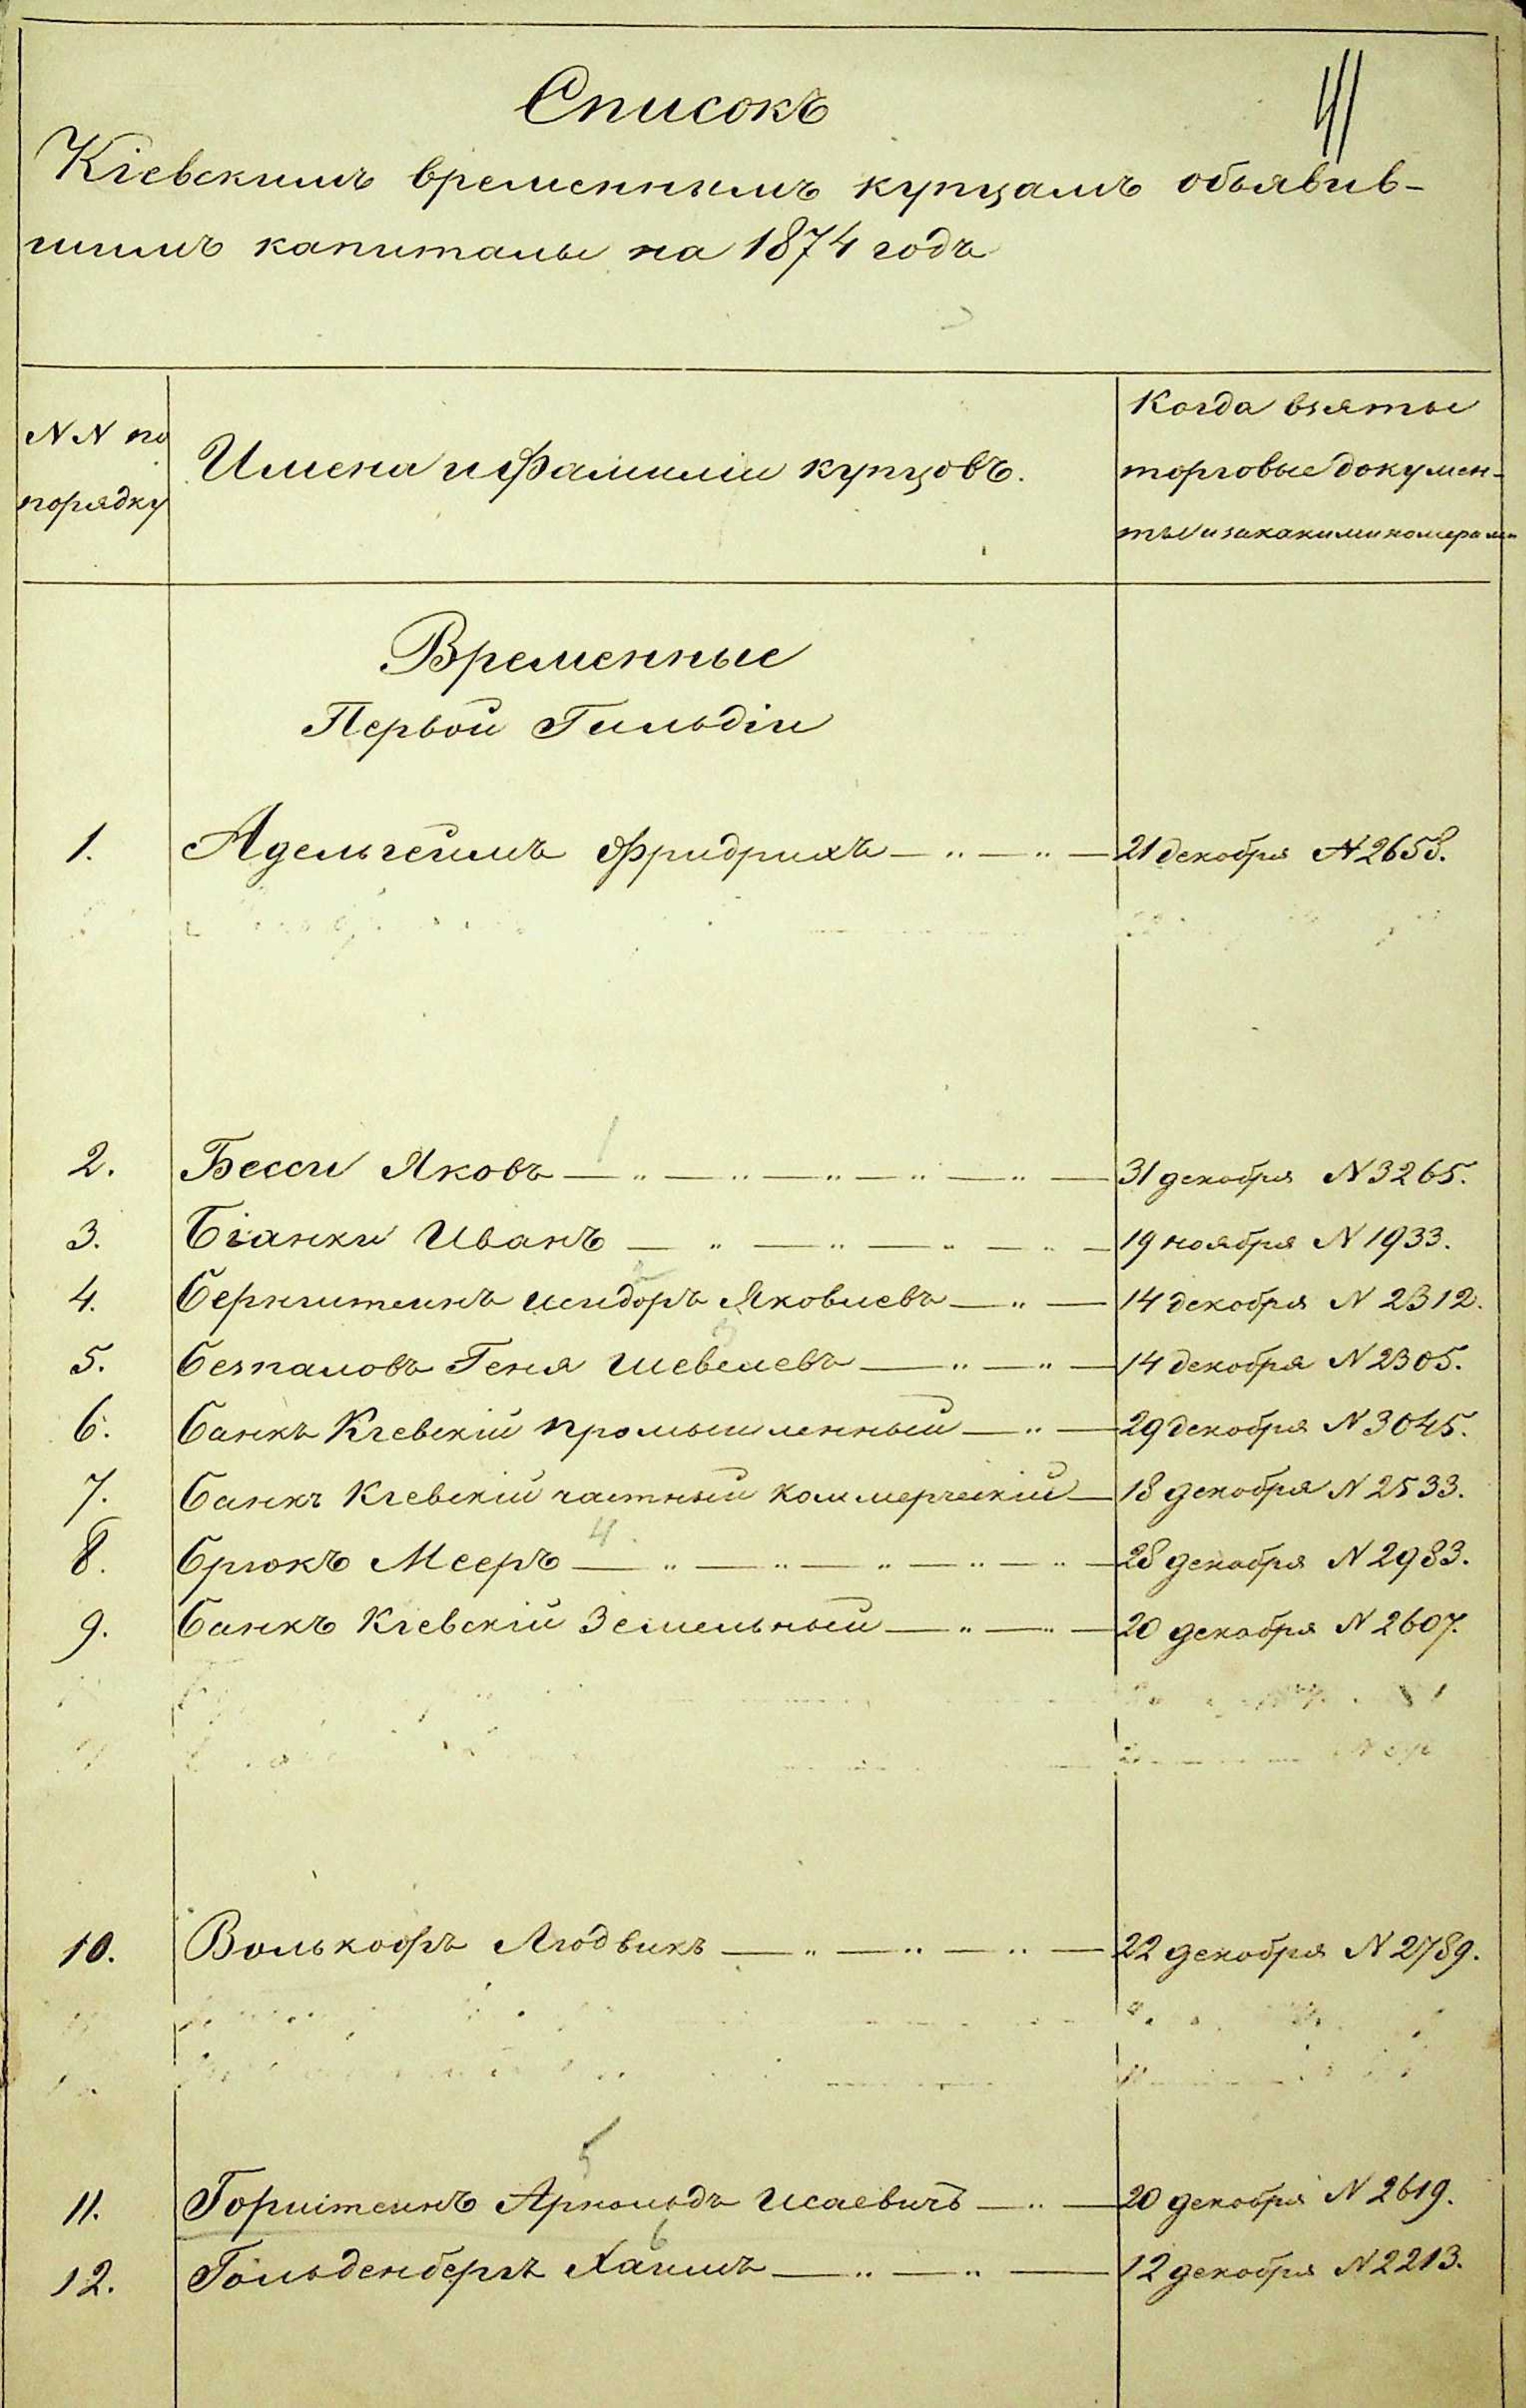 Списокъ
Кіевскимъ временнымъ купцамъ объявив-
шимъ капиталы на 1874 годъ
NN по
порядку
Имена и Фамиліи купцовъ.
Когда взяты
торговые докумен-
ты и за какими номерами
Временные
Первой Гильдіи
1. Адельгеимъ Фридрихъ — „ — „ — 21 декабря N 2658.
2. Бесси Яковъ — „ — „ — „ — „ — „ — 31 декабря N 3265.
3. Біанки Иванъ — „ — „ — „ — „ — 19 ноября N 1933.
4. Бернштеинъ Исидоръ Яковлевъ — „ — 14 декабря N 2312.
5. Безпаловъ Геня Шевелевъ — „ — „ — 14 декабря N 2305.
6. Банкъ Кіевскій промышленный — „ — 29 декабря N 3045.
7. Банкъ Кіевскій частный коммерческій — 18 декабря N 2533.
4
8. Брюкъ Мееръ — „ — „ — „ — „ — „ — 28 декабря N 2983.
9. Банкъ Кіевскій Земельный — „ — „ — 20 декабря N 2607.
10. Волькофъ Людвикъ — „ — „ — „ — 22 декабря N 2789.
5
11. Горштеинъ Арнольдъ Исаевичъ — „ — 20 декабря N 2619.
6
12. Гольденбергъ Хаимъ — „ — „ — 12 декабря N 2213.